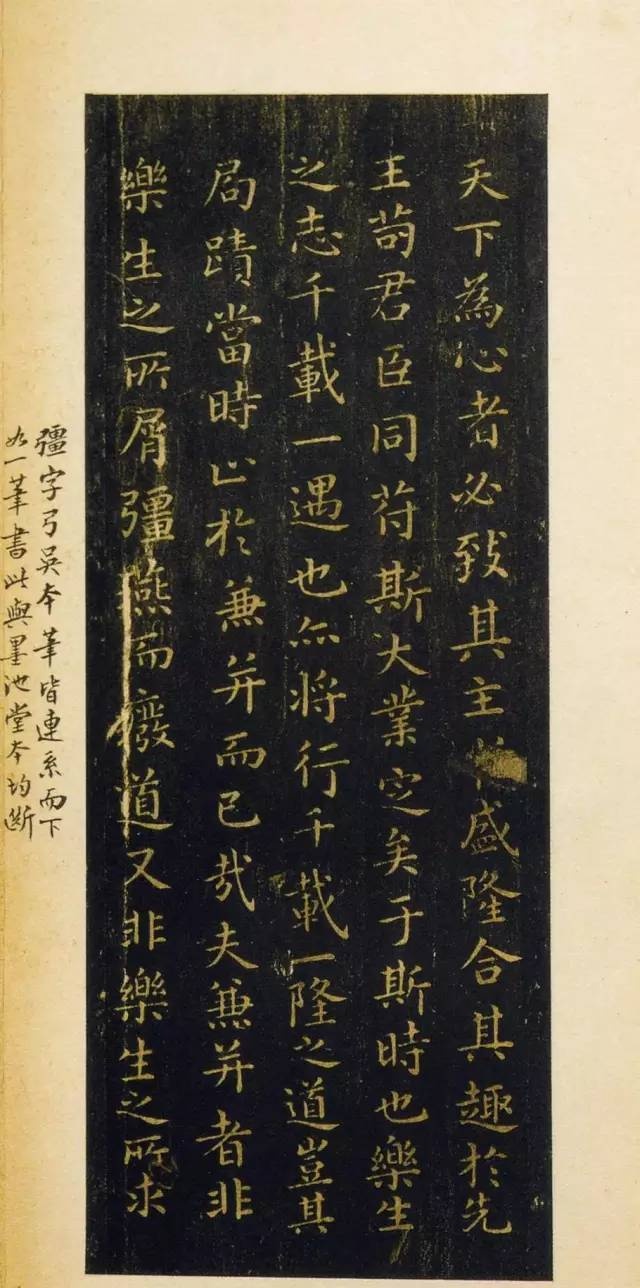 天下為心者必致其主於盛隆合其趣於先
王苟君臣同符斯大業定矣于斯時也樂生
之志千載一遇也亦將行千載一隆之道豈其
局蹟當時止於兼并而已哉夫兼并者非
樂生之所屑彊燕而廢道又非樂生之所求
彊字弓吳本筆皆連系而下
如一筆書此與墨池堂本均斷